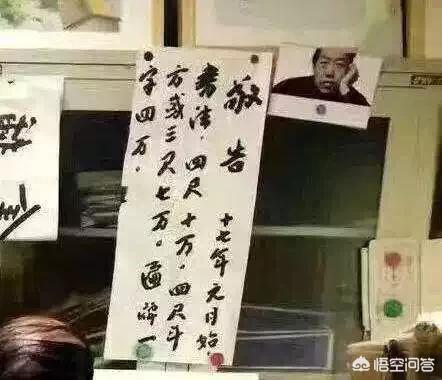 敬告 十七年元月始.
書法.四尺十万.四尺斗
方或三尺七万。匾牌一
字四万.
悟空问答